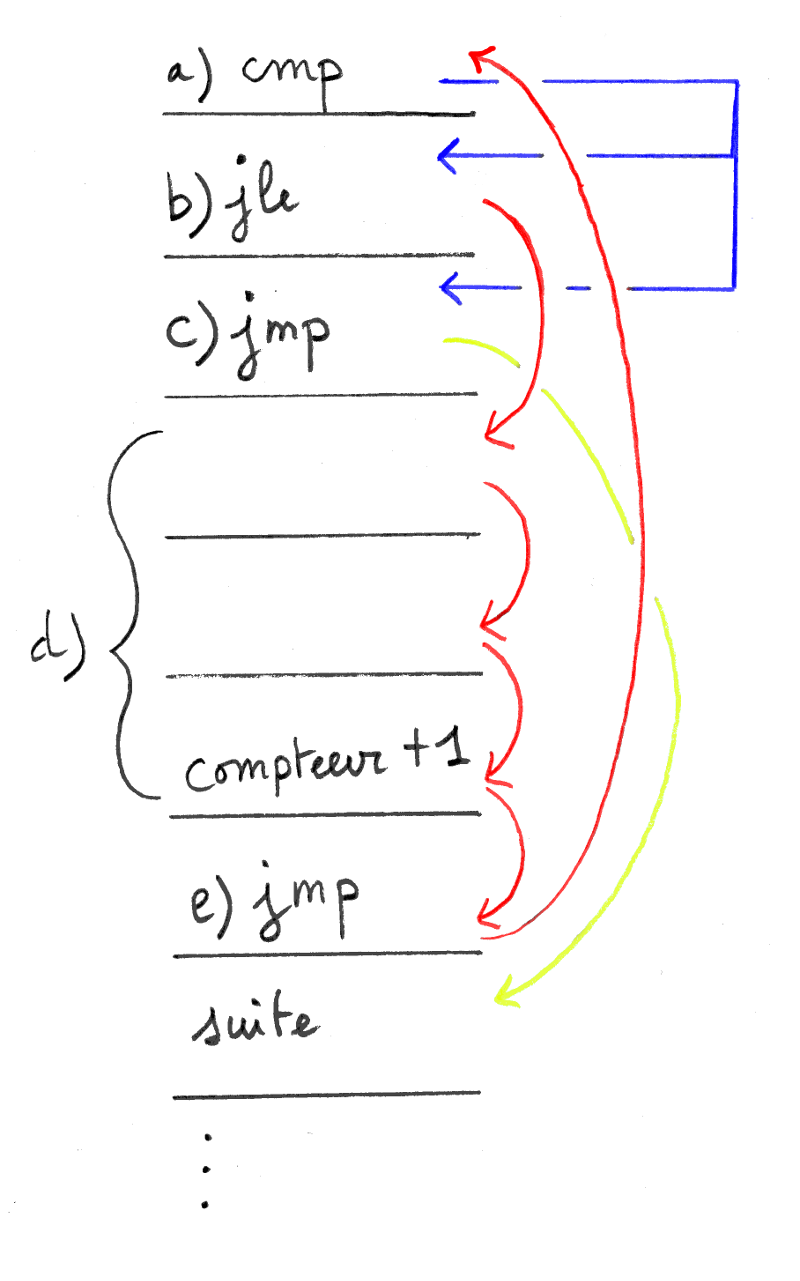 a) cmp
b) jle
c) jmp
d)
compteur +1
e) jmp
suite